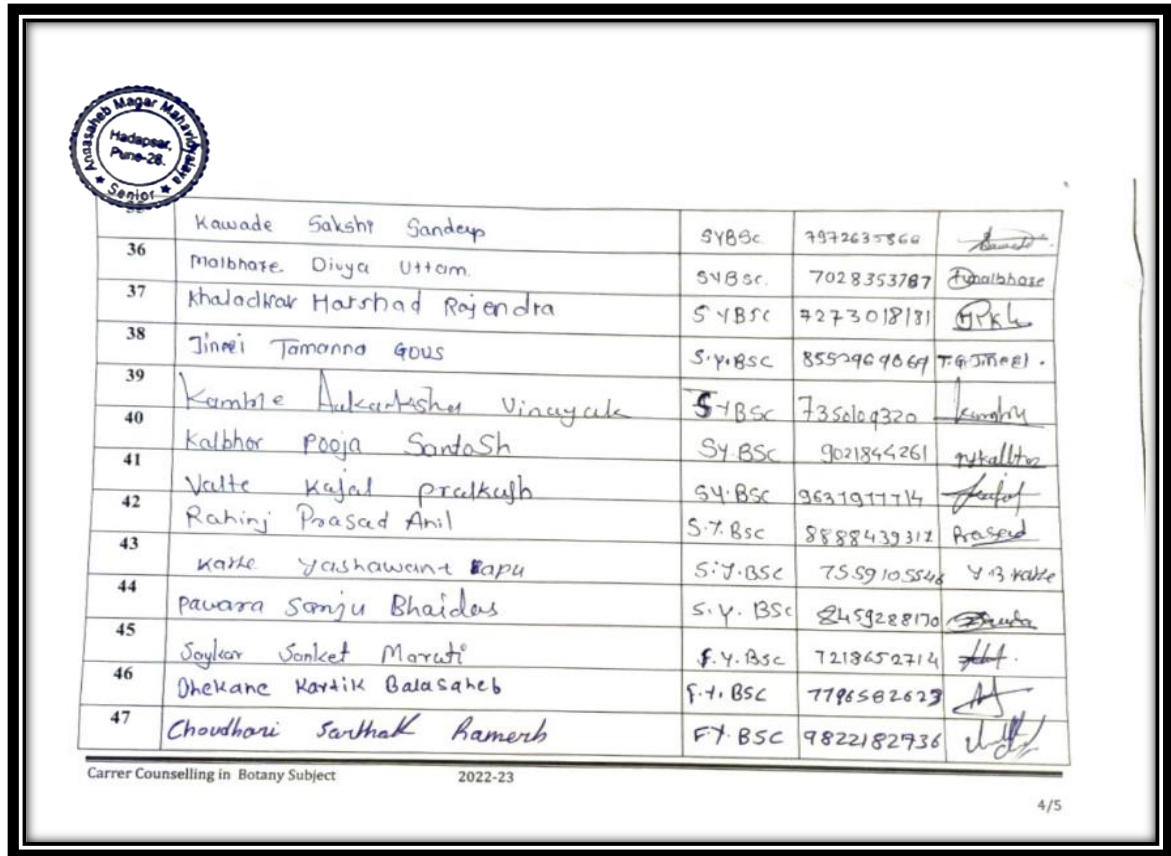 Annasaheb Magar Mahavidyalaya
Hadapsar,
Pune-28.
★ Senior ★
Kawade Sakshi Sandeep SYBSc. 7972635866
36 Malbhare Divya Uttam. SYBSc. 7028353787 Dmalbhare
37 Khaladkar Harshad Rajendra SYBSC 7273018181 HRKh
38 Jineri Tamanna GOUS S.Y.BSC 8552969069 T.G.Jineri.
39 Kamble Aakanksha Vinayak SYBSC 7350109320
40 Kalbhor Pooja Santosh SY.BSC 9021844261
41 Valte Kajal Prakash SY.BSC 9637977714
42 Rahinj Prasad Anil S.Y.BSC 8888439317 Prasad
43 Karle Yashawant Bapu S.Y.BSC 7559105546 Y B Karle
44 Pawara Sanju Bhaidas S.Y.BSC 8459288170
45 Saykar Sanket Maruti F.Y.BSC 7218652714
46 Dhekane Kartik Balasaheb F.Y.BSC 7796582623
47 Choudhari Sarthak Ramesh F.Y.BSC 9822182736
Carrer Counselling in Botany Subject 2022-23
4/5